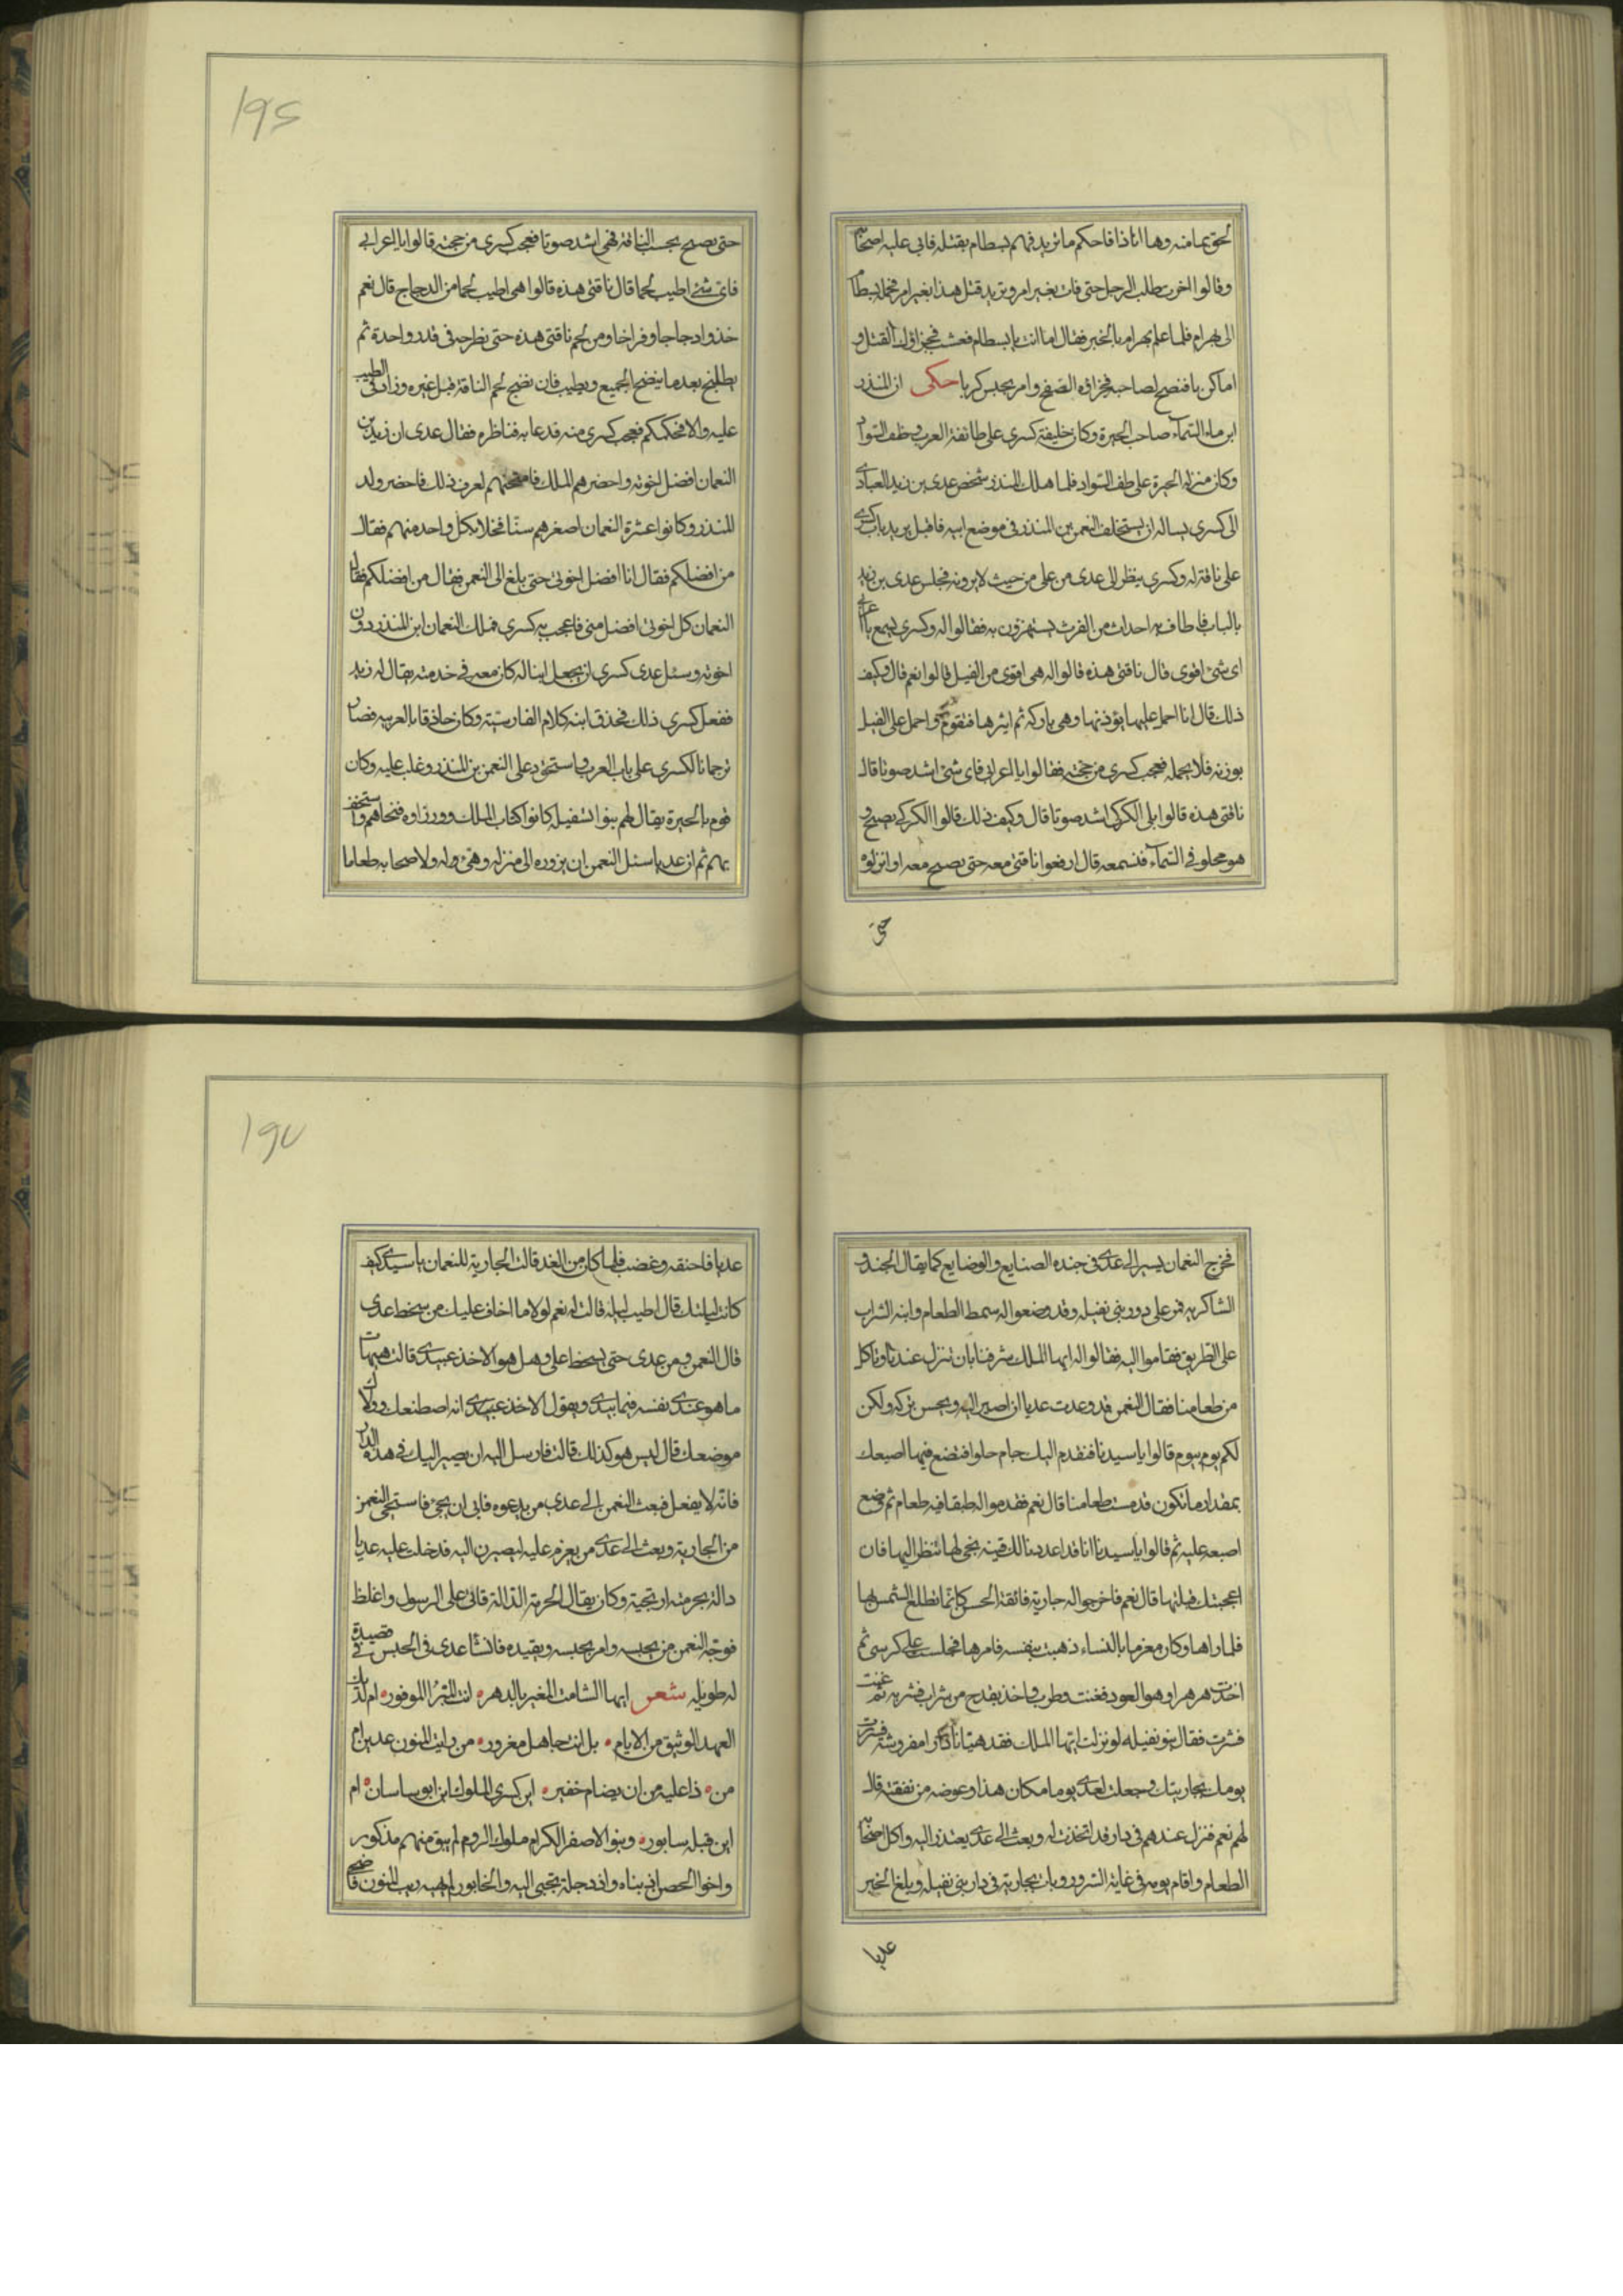 لحق بمامنه وها انا ذا فاحكم ما تريد فهم بسطام بقتله فابى عليه اصحابه
وقالوا اخرت طلب الرجل حتى فات بغير امر وتريد قتل هذا بغير امر فحمله بسطام
الى بهرام فلما علم بهرام بالخبر فقال اما انت يا بسطام فعشت فجزاؤك القتل و
اما كرباقنصح لصاحبه فجزاؤه الصفح وامر بحبس كربا حكى ان المنذر
ابن ماء السماء صاحب الحيرة وكان خليفة كسرى على طائفة العرب وطف السواد
وكان منزله الحيرة على طف السواد فلما هلك المنذر شخص عدى بن زيد العبادى
الى كسرى يساله ان يستخلف النعمن بن المنذر فى موضع ابيه فاقبل يريد باب كسرى
على ناقة له وكسرى ينظر الى عدى من على من حيث لا يرونه فجلس عدى بن زيد
بالباب فاطاف به احداث من الفرس يستهزون به فقالوا له وكسرى يسمع يا اعرابى
اى شئ اقوى قال ناقتى هذه قالوا له هى اقوى من الفيل قالوا نعم قال وكيف
ذلك قال انا احمل عليها بوزنها وهى باركه ثم اثيرها فتقوم واحمل على الفيل
بوزنه فلا يحمله فعجب كسرى من حجته فقالوا يا اعرابى فاى شئ اشد صوتا قال
ناقتى هذه قالوا بلى الكركى اشد صوتا قال وكيف ذلك قالوا الكركى يصيح و
هو محلو فى السماء فنسمعه قال ارفعوا ناقتى معه حتى يصيح معه او انزلوه
حتى
۱۹۶
حتى يصيح بجنب الناقة فهى اشد صوتا فعجب كسرى من حجته قالوا يا اعرابى
فاى شئ اطيب لحما قال ناقتى هذه قالوا هى اطيب لحما من الدجاج قال نعم
خذوا دجاجا وفراخا ومن لحم ناقتى هذه حتى نطرحه فى قدر واحدة ثم
يطبخ بعد ما ينضج الجميع ويطيب فان نضج لحم الناقة قبل غيره وزاد فى الطيب
عليه والا فحكمكم فعجب كسرى منه فدعا به فناظره فقال عدى ان زيد بن
النعمان افضل اخوته واحضرهم الملك فامتحنهم لعرف ذلك فاحضر ولد
المنذر وكانوا عشرة النعمان اصغرهم سنا فخلا بكل واحد منهم فقال
من افضلكم فقال انا افضل اخوتى حتى بلغ الى النعمن فقال من افضلكم فقال
النعمان كل اخوتى افضل منى فاعجب به كسرى فملك النعمان ابن المنذر دون
اخوته وسئل عدى كسرى ان يجعل ابنا له كان معه فى خدمته يقال له زيد
ففعل كسرى ذلك فحذق ابنه كلام الفارسية وكان حاذقا بالعربيه فصار
ترجمانا لكسرى على باب العرب واستحوذ على النعمن بن المنذر وغلب عليه وكان
قوم بالحيرة يقال لهم بنوا نفيله كانوا كتاب الملك ووزراوه فنحاهم واستخف
بهم ثم ان عديا سئل النعمن ان يزوره الى منزله وهيئ له ولاصحابه طعاما
فخرج النعمان يسير الى عدى فى جنده الصنايع والوضايع كما يقال الجند و
الشاكريه فمر على دور بنى نفيله وقد وضعوا له سمط الطعام وانيه الشراب
على الطريق فقاموا اليه فقالوا له ايها الملك شرفنا بان تنزل عندنا وتاكل
من طعامنا فقال النعمن قد وعدت عديا ان اصير اليه ويحسن بركه ولكن
لكم يوم بيوم قالوا يا سيدنا فنقدم اليك جام حلوا فتضع فيها اصبعك
بمقدار ما تكون قد مست طعامنا قال نعم فقدموا له طبقا فيه طعام ثم وضع
اصبعه عليه ثم قالوا يا سيدنا انا قد اعددنا لك قينه نخجلها تنظر اليها فان
اعجبتك قبلتها قال نعم فاخرجوا له جارية فائقة الحسن كانما تطلع الشمس بها
فلما راها وكان مغرما بالنساء ذهبت بنفسه فامرها فجلست على كرسى ثم
اخذت هرهرا وهو العود فغنت وطرب واخذ بقدح من شراب فشربه ثم غنت
فشربت فقال بنو نفيله لو نزلت ايها الملك فقد هيانا دارا مفروشة فسررت
يومك بجاريتك وجعلت لعدى يوما مكان هذا وعوضه من نفقته قال
لهم نعم فنزل عندهم فى دار قد اتخذت له وبعث الى عدى يعتذر اليه واكل اصحابه
الطعام واقام يومه فى غاية السرور وبات بجاريته فى دار بنى نفيله وبلغ الخبر
عديا
۱۹۷
عديا فاحنقه وغضب فلما كان من الغد قالت الجارية للنعمان يا سيدى كيف
كانت ليلتك قال اطيب ليله قالت له نعم لولا ما اخاف عليك من سخط عدى
قال النعمن ومن عدى حتى يسخط على وهل هو الا اخذ عبيدى قالت هيهات
ما هو عندى نفسه فيما يبدى ويقول الا اخذ عبيدى انه اصطنعك وولاك
موضعك قال ليس هو كذلك قالت فارسل اليه ان يصير اليك فى هذه الدار
فانه لا يفعل فبعث النعمن الى عدى من يدعوه فابى ان يجئ فاستحيى النعمن
من الجارية وبعث الى عدى من يعزم عليه ليصيرن اليه فدخلت عليه عديا
دالة بحرمته او بحجة وكان يقال الحرمة الدالة فابى على الرسول واغلظ
فوجه النعمن من يحبسه وامر بحبسه وبقيده فانشا عدى فى الحبس فى قصيدة
له طويله شعر ايها الشامت المغير بالدهر انت المبرا الموفور ام لديك
العهد الوثيق من الايام بل انت جاهل مغرور من رايت المنون عدين ام
من ذا عليه من ان يضام خفير اين كسرى الملوك اين ابو ساسان ام
اين قبله سابور وبنو الاصفر الكرام ملوك الروم لم يبق منهم مذكور
واخوا الحصن اذ بناه واذ دجلة تجبى اليه والخابور لم يهبه ريب المنون فاضحى